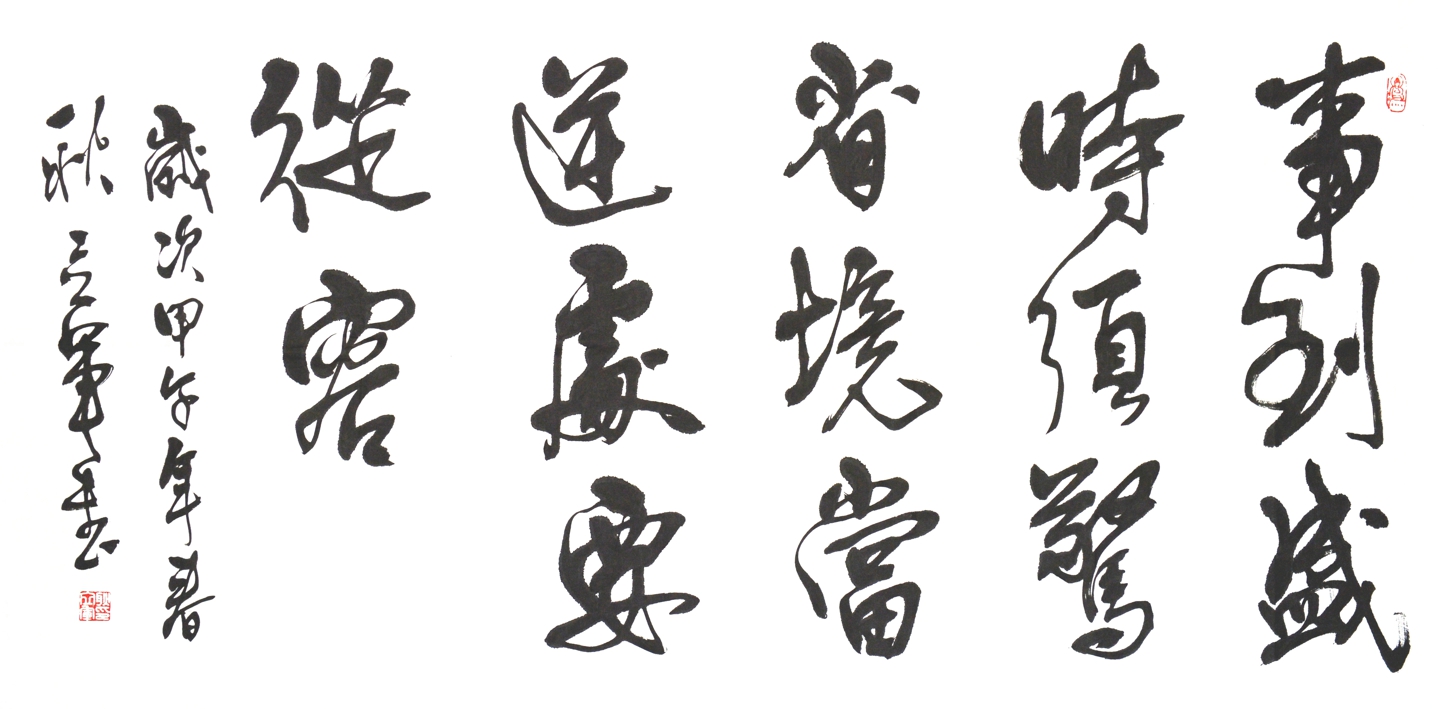 事到盛
時須驚
省境當
逆處要
從容
歲次甲午年春
秋立軍書